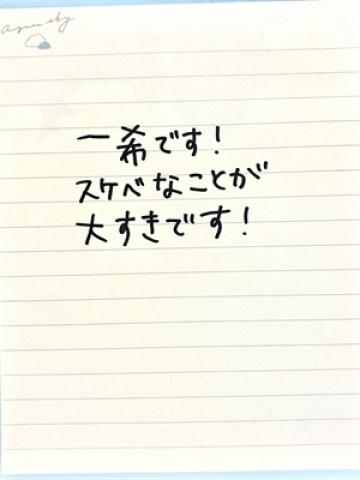 一希です!
スケベなことが
大すきです!